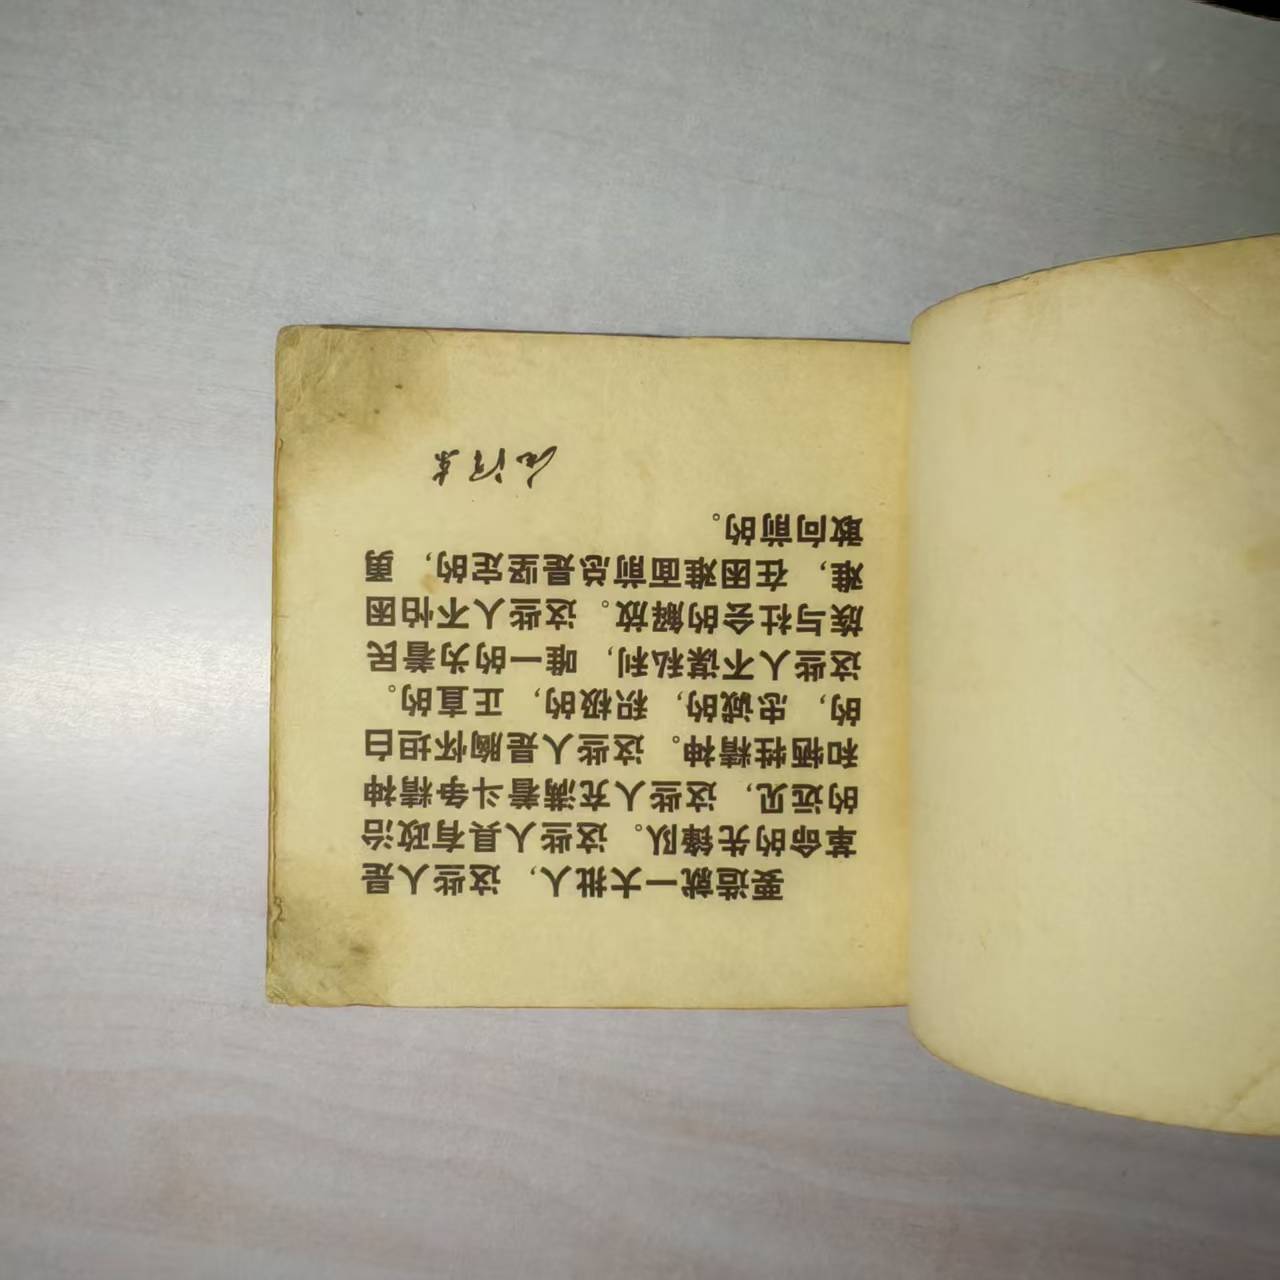 要造就一大批人，这些人是
革命的先锋队。这些人具有政治
的远见，这些人充满着斗争精神
和牺牲精神。这些人是胸怀坦白
的，忠诚的，积极的，正直的。
这些人不谋私利，唯一的为着民
族与社会的解放。这些人不怕困
难，在困难面前总是坚定的，勇
敢向前的。
毛泽东